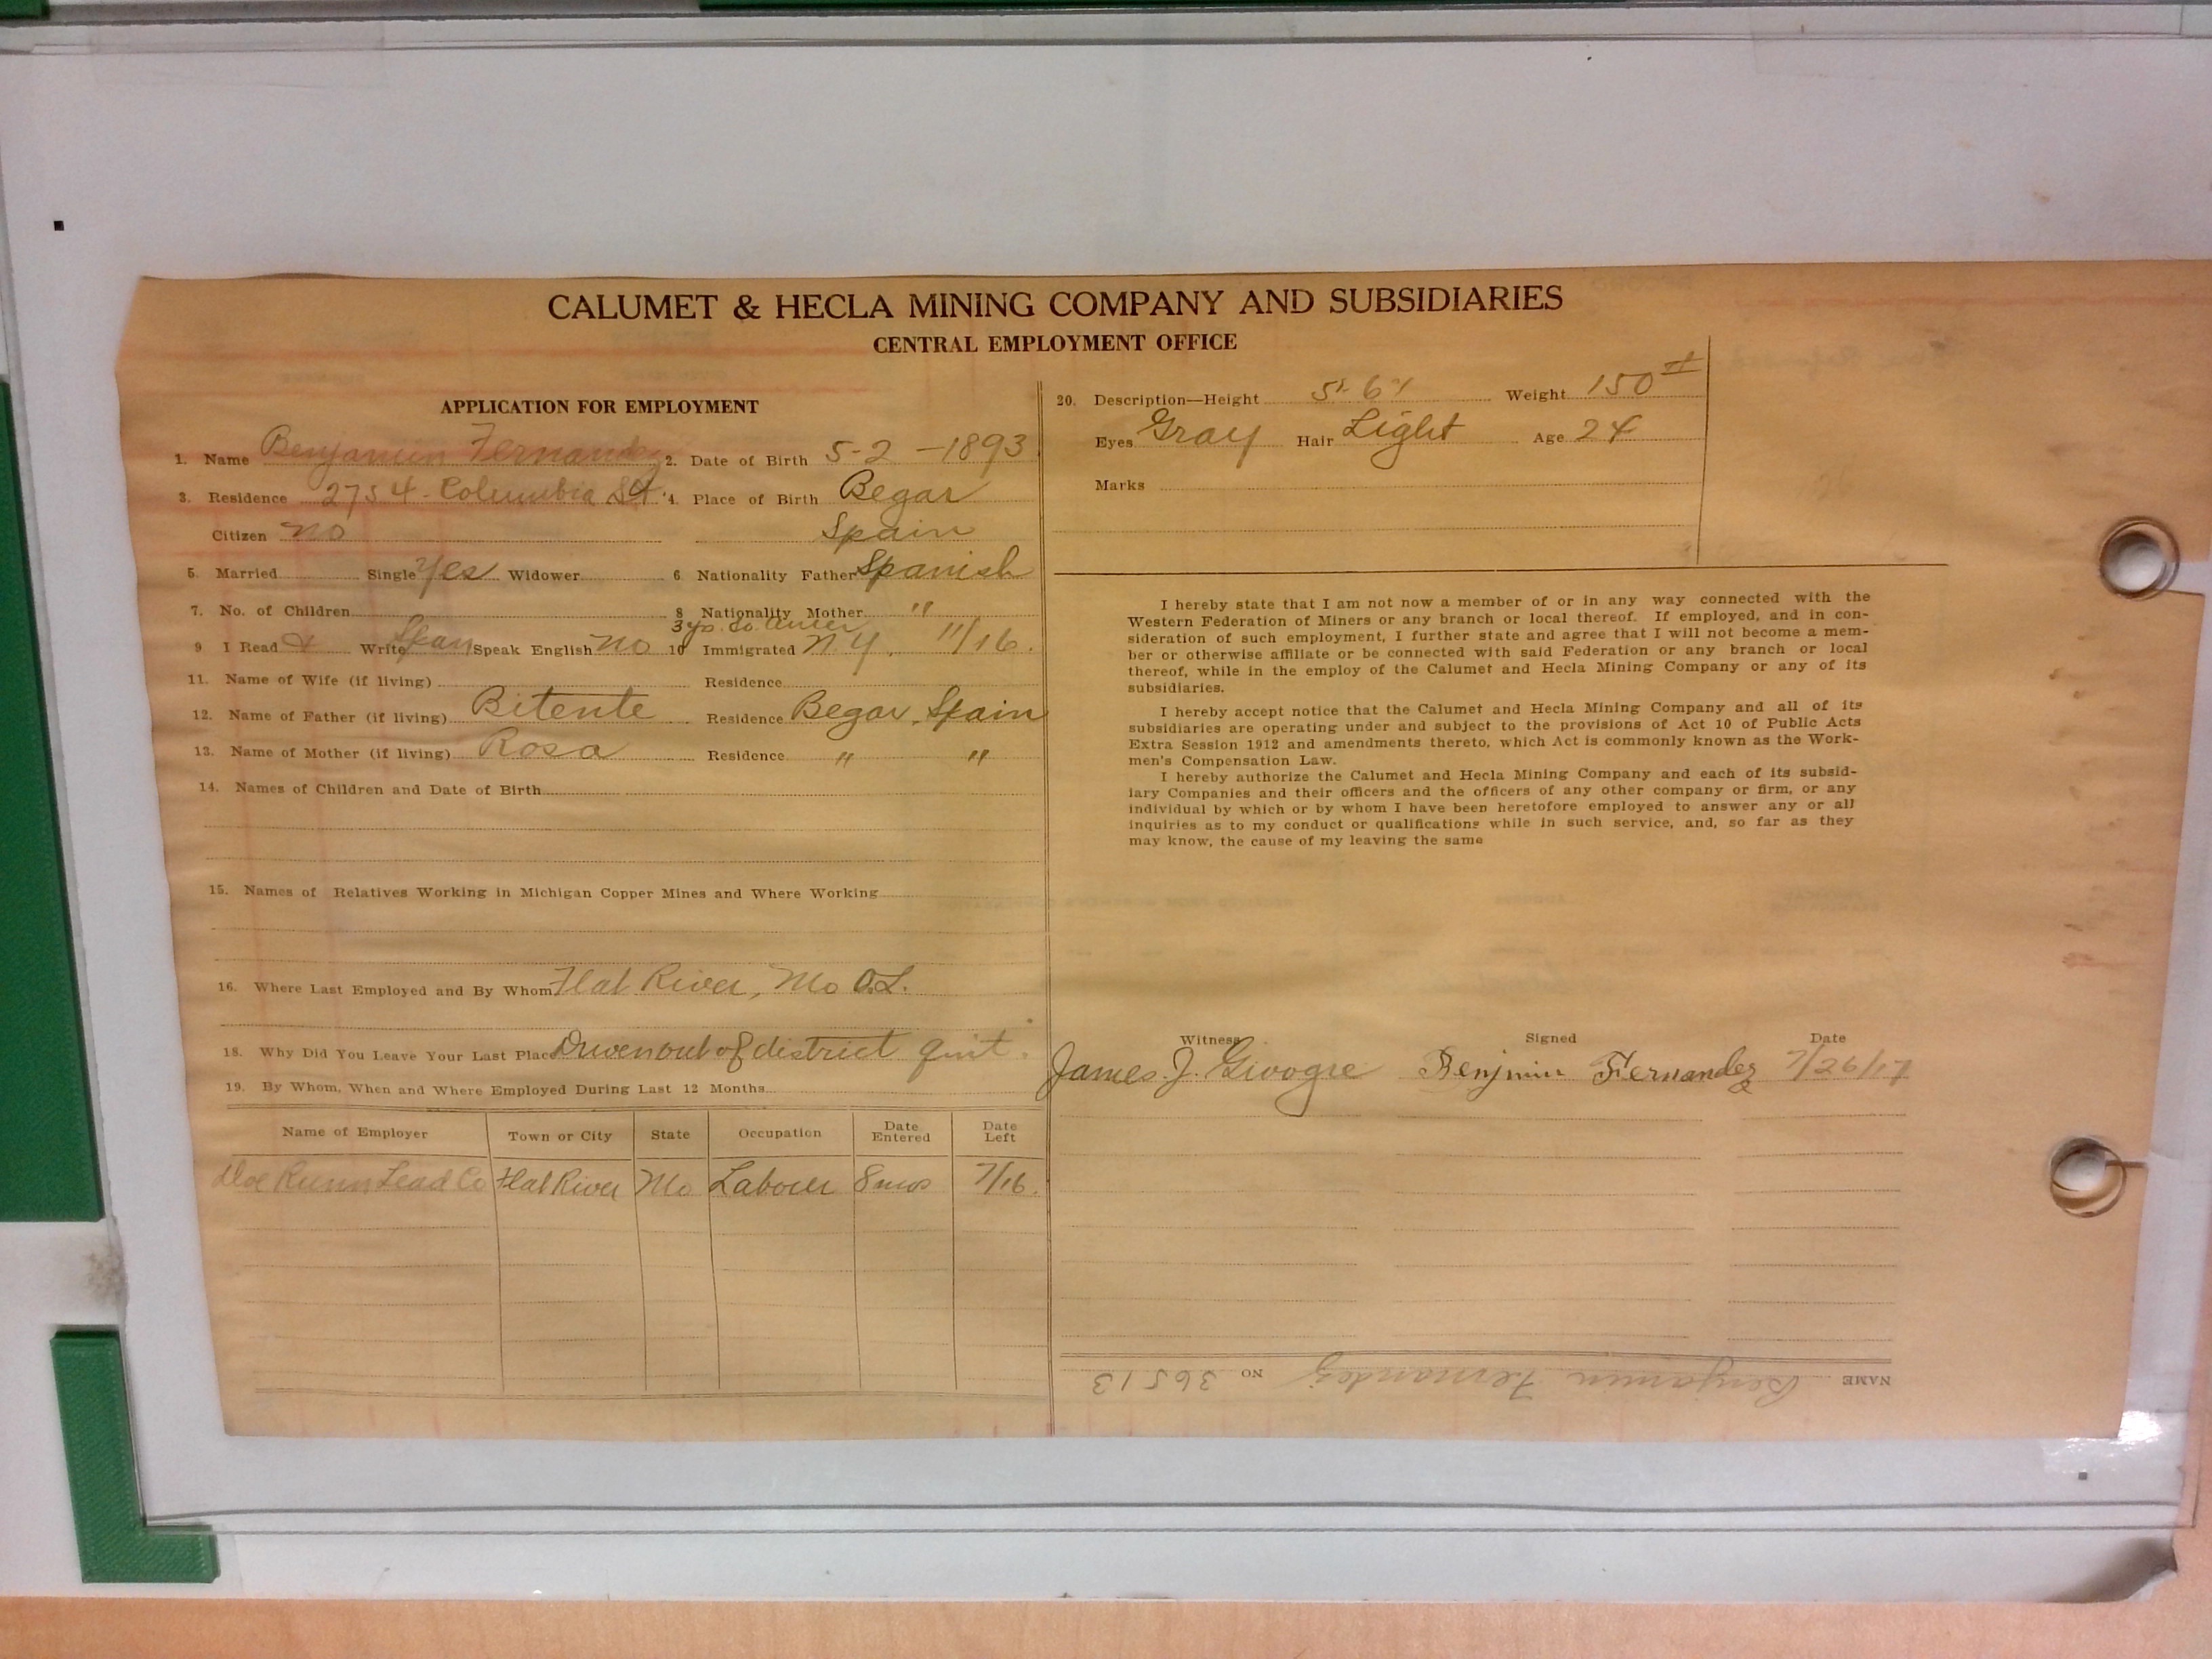 CALUMET & HECLA MINING COMPANY AND SUBSIDIARIES
CENTRAL EMPLOYMENT OFFICE
APPLICATION FOR EMPLOYMENT
1. Name Benjamin Fernandez 2. Date of Birth 5-2-1893
3. Residence 2754 Columbia St. 4. Place of Birth Begar
Citizen no Spain
5. Married Single Yes Widower 6 Nationality Father Spanish
7. No. of Children 8 Nationality Mother "
3 yrs. So. Amer
9 I Read & Write Span Speak English no 10 Immigrated N.Y. 11/16.
11. Name of Wife (if living) Residence
12. Name of Father (if living) Bitente Residence Begar, Spain
13. Name of Mother (if living) Rosa Residence " "
14. Names of Children and Date of Birth
15. Names of Relatives Working in Michigan Copper Mines and Where Working
16. Where Last Employed and By Whom Flat River, Mo O.L.
18. Why Did You Leave Your Last Place Driven out of district quit.
19. By Whom, When and Where Employed During Last 12 Months
Name of Employer Town or City State Occupation Date Entered Date Left
Doe Runn Lead Co Flat River Mo Laborer 8 mos 7/16.
20. Description—Height 5' 6" Weight 150 #
Eyes Gray Hair Light Age 24
Marks
I hereby state that I am not now a member of or in any way connected with the
Western Federation of Miners or any branch or local thereof. If employed, and in con-
sideration of such employment, I further state and agree that I will not become a mem-
ber or otherwise affiliate or be connected with said Federation or any branch or local
thereof, while in the employ of the Calumet and Hecla Mining Company or any of its
subsidiaries.
I hereby accept notice that the Calumet and Hecla Mining Company and all of its
subsidiaries are operating under and subject to the provisions of Act 10 of Public Acts
Extra Session 1912 and amendments thereto, which Act is commonly known as the Work-
men's Compensation Law.
I hereby authorize the Calumet and Hecla Mining Company and each of its subsid-
iary Companies and their officers and the officers of any other company or firm, or any
individual by which or by whom I have been heretofore employed to answer any or all
inquiries as to my conduct or qualifications while in such service, and, so far as they
may know, the cause of my leaving the same
Witness Signed Date
James J. Benjmin Fernandez 7/26/17
NAME Benjamin Fernandez NO 36513